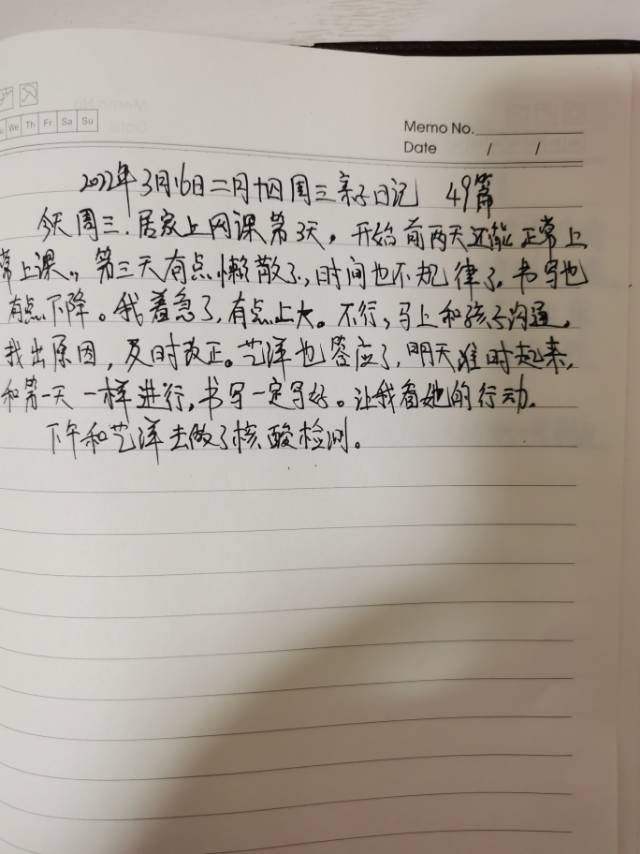 We Th Fr Sa Su
Memo No.
Date / /
2022年3月16日二月十四周三亲子日记 49篇
今天周三.居家上网课第3天,开始前两天还能正常上
常上课,。第三天有点懒散了,时间也不规律了,书写也
有点下降。我着急了,有点上火。不行,马上和孩子沟通,
找出原因,及时改正。艺洋也答应了,明天准时起来,
和第一天一样进行,书写一定写好。让我看她的行动.
下午和艺洋去做了核酸检测。